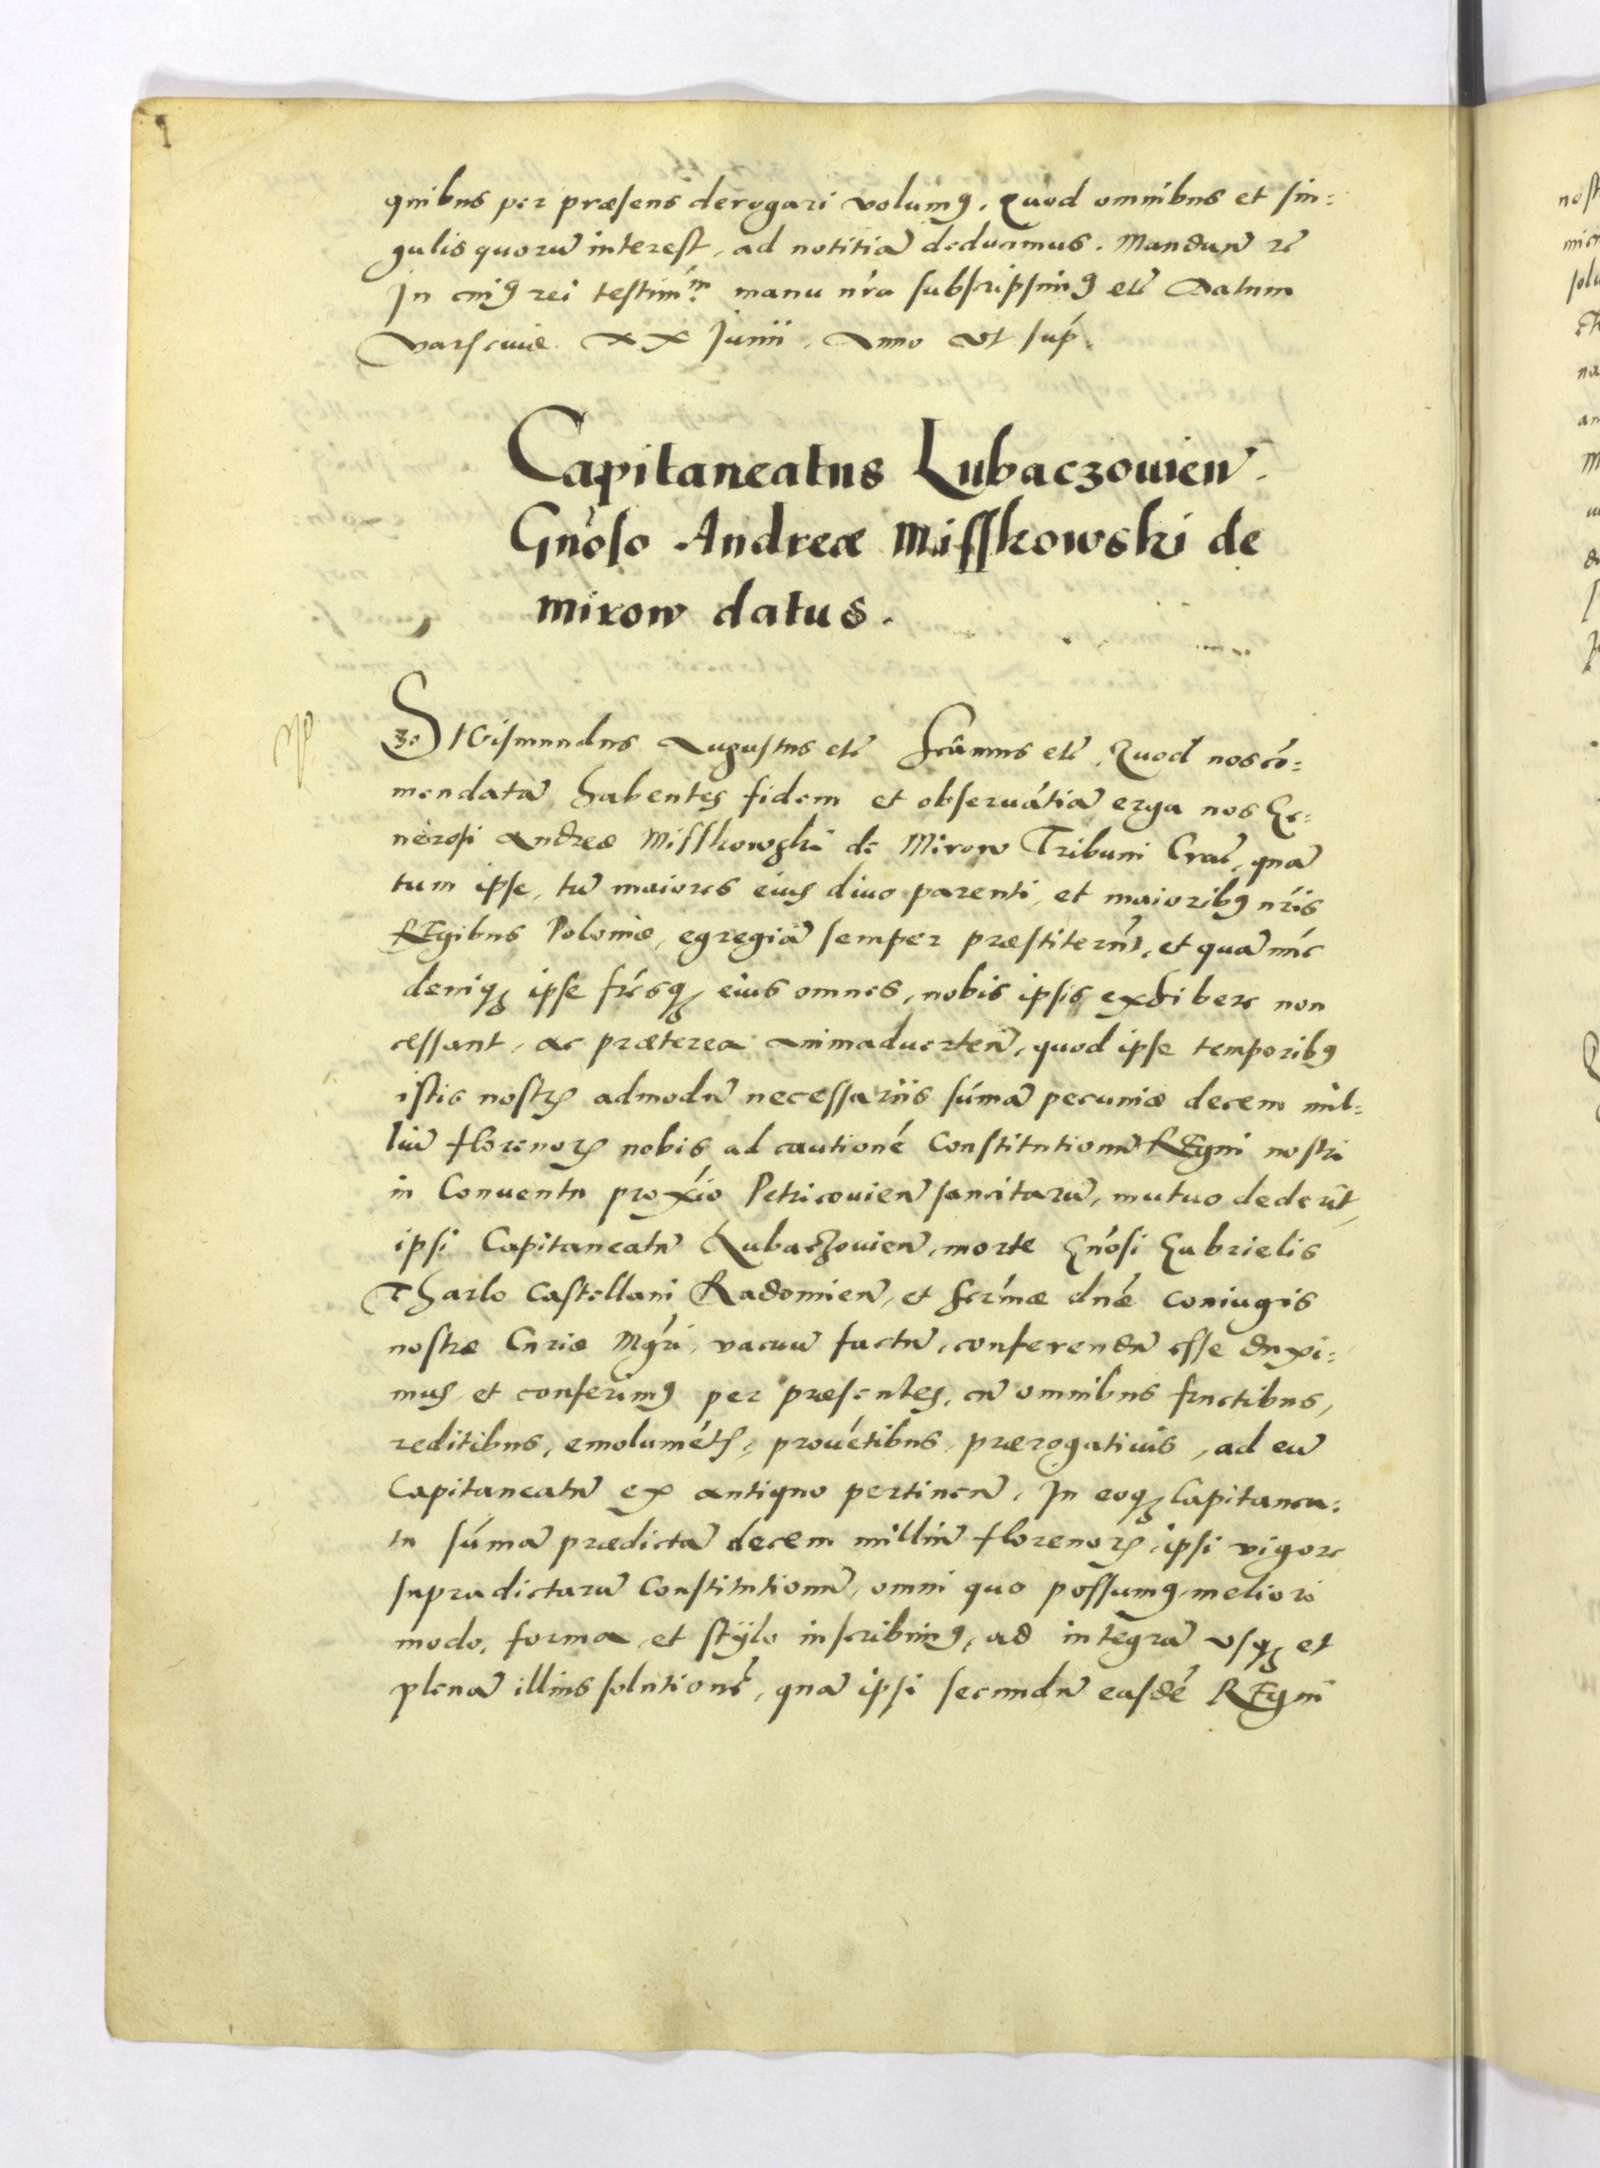 quibus per præsens derogari volumꝰ. Quod omnibus et sin=
gulis quorū interest, ad notitiā deducimus. Mandan̄ rc̄
In cuiꝰ rei testim.m manu nr̄a subscripsimꝰ etc̄ Datum
Varsauiæ XX Junii. Anno vt sup.
Capitaneatus Lubaczouien̄.
Gn̄oso Andreæ Misskowski de
mirow datus.
SIGismundus Augustus etc̄ Sc̄amus etc̄. Quod nos cō=
mendatā habentes fidem et obseruātiā erga nos Ge=
nerosi Andreæ Misskowski de Mirow Tribuni Crac̄, quā
tum ipse, tū maiores eius diuo parenti, et maioribꝰ nr̄is
REgibus Poloniæ, egregiā semper præstiterūt, et quā nūc
deniqꝫ ipse fr̄esqꝫ eius omnes, nobis ipsis exhibere non
cessant, ac præterea animaduerten̄, quod ipse temporibꝰ
istis nostrꝭ admodū necessariis sūmā pecuniæ decem mil=
liū florenorꝝ nobis ad cautionē Constitutionū REgni nostri
in Conuentu proxīo Petricouien̄ sancitarū, mutuo dederit,
ipsi Capitaneatū Lubaczouien̄, morte Gn̄osi Gabrielis
Tharlo Castellani Radomien̄, et Ser̄mæ dn̄æ coniugis
nostræ Curiæ Mgr̄i, vacuū factū, conferendū esse duxi=
mus, et conferimꝰ per præsentes, cū omnibus fructibus,
reditibus, emolumētꝭ, prouētibus, prærogatiuis, ad eū
Capitaneatū ex antiquo pertinen̄. In eoqꝫ Capitanea=
tu sūmā prædictā decem milliū florenorꝝ, ipsi vigore
supradictarū Constitutionū, omni quo possumꝰ meliori
modo, forma, et stylo inscribimꝰ, ad integrā vsqꝫ et
plenā illius solutionē, quā ipsi secundū easdē REgni